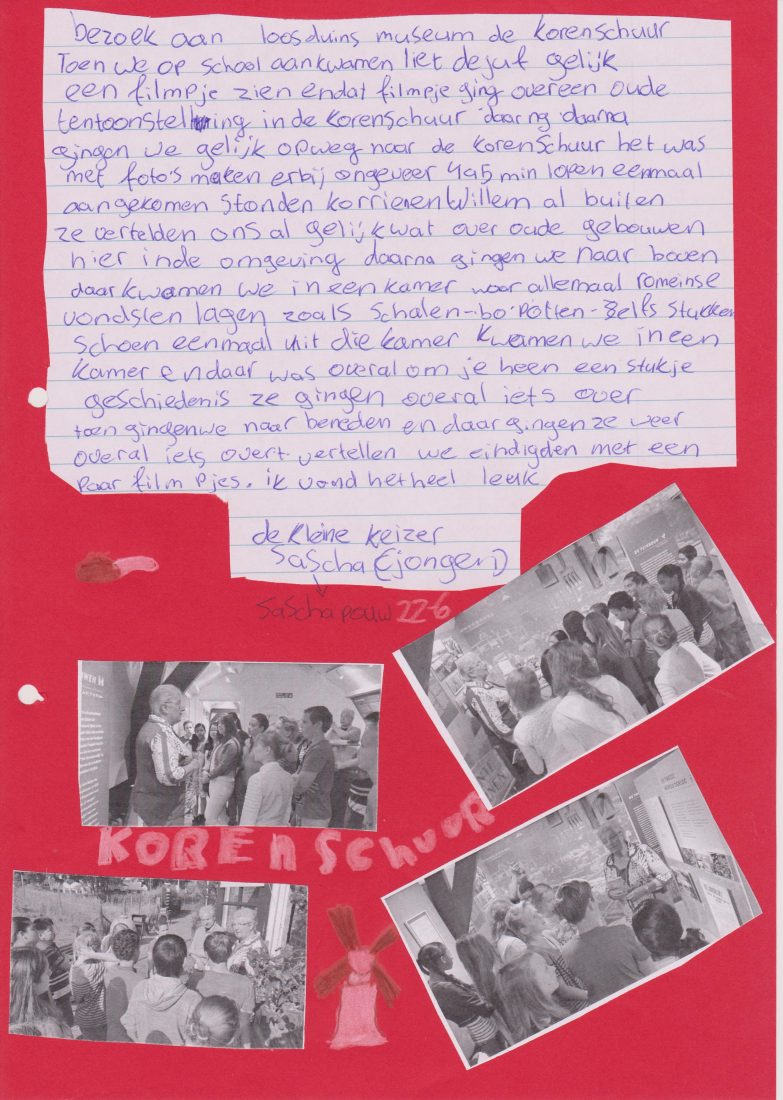 bezoek aan loosduins museum de korenschuur
Toen we op school aankwamen liet de juf gelijk
een filmpje zien endat filmpje ging overeen oude
tentoonstelling in de korenschuur daarna
gingen we gelijk opweg naar de korenschuur het was
met foto's maken erbij ongeveer 4a5 min lopen eenmaal
aangekomen stonden korrienenWillem al buiten
ze vertelden ons al gelijk wat over oude gebouwen
hier inde omgeving daarna gingen we naar boven
daar kwamen we in een kamer waar allemaal romeinse
vondsten lagen zoals schalen--potten-zelfs stukken
schoen eenmaal uit die kamer kwamen we ineen
kamer endaar was overal om je heen een stukje
geschiedenis ze gingen overal iets over
toen gingenwe naar beneden en daar gingen ze weer
overal iets overt vertellen we eindigden met een
paar film pjes. ik vond het heel leuk
de kleine keizer
Sascha (jongen)
Sascha pouw 22-6
KORENSCHUUR